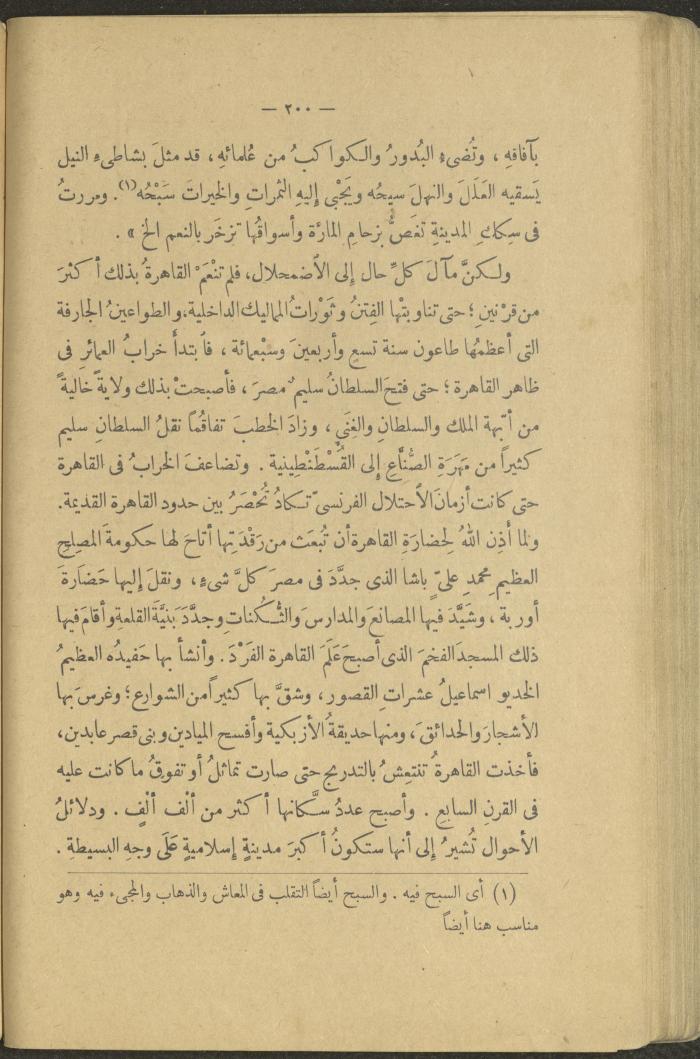 — ٢٠٠ —
بآفاقه ، وتُضىء البُدورُ والكواكبُ من عُلمائهِ ، قد مثلَ بشاطىءِ النيل
يَسقيه العَلَلَ والنهلَ سيحُه ويَجْبِى إليهِ الثمراتِ والخيراتَ سَبْحُه(١). ومررتُ
فى سِككِ المدينةِ تغَصُّ بزحامِ المارَّة وأسواقُها تزخَر بالنعم الخ » .
ولكنَّ مآلَ كلِّ حال إلى الأضمحلال، فلم تنْعَمْ القاهرةُ بذلك أكثرَ
من قرْنينِ ؛ حتى تناوبتْها الفِتنُ وثَوْراتُ المماليك الداخلية، والطواعينُ الجارفة
التى أعظمُها طاعون سنة تسعٍ وأربعينَ وسبْعمائة ، فأبتدأَ خرابُ العمائرِ فى
ظاهر القاهرة ؛ حتى فتحَ السلطانُ سليم مصرَ ، فأصبحتْ بذلك ولايةً خاليةً
من أبّهة الملك والسلطانِ والغِنَى ، وزادَ الخطبَ تفاقُمًا نقلُ السلطانِ سليم
كثيراً من مَهَرَةِ الصُّنَّاعِ إلى القُسْطَنْطِينية . وتضاعفَ الخرابُ فى القاهرة
حتى كانت أزمانَ الأحتلال الفرنسىّ تكادُ تُحْصَرُ بين حدود القاهرة القديمة.
ولما أَذِن اللهُ لِحضارَةِ القاهرة أن تُبعَث من رَقْدَتِها أتاحَ لها حكومةَ المصلِحِ
العظيمِ محمدِ علىّ باشا الذى جدَّدَ فى مصرَ كلَّ شىءٍ ، ونقلَ إليها حَضَارَةَ
أوربة ، وشَيَّدَ فيها المصانعَ والمدارسَ والثُّكناتِ وجدَّدَ بَنيَّةَ القلعةِ وأقامَ فيها
ذلك المسجدَ الفخمَ الذى أصبحَ عَلَمَ القاهرة الفَرْدَ . وأنشأ بها حَفيدُه العظيمُ
الخديو اسماعيلُ عشراتِ القصور ، وشقَّ بها كثيراً من الشوارع ؛ وغرسَ بها
الأشجارَ والحدائقَ ، ومنها حديقةُ الأزبكية وأفسح الميادين وبنى قصر عابدين،
فأخذت القاهرةُ تنتعِشُ بالتدريج حتى صارت تماثلُ أو تفوقُ ما كانت عليه
فى القرنِ السابعِ . وأصبح عددُ سكّانها أكثر من ألْف ألْفٍ . ودلائلُ
الأحوال تُشيرُ إلى أنها ستكونُ أكبرَ مدينةٍ إسلاميةٍ عَلَى وجهِ البسيطة .
(١) أى السبح فيه . والسبح أيضاً التقلب فى المعاش والذهاب والمجىء فيه وهو
مناسب هنا أيضاً